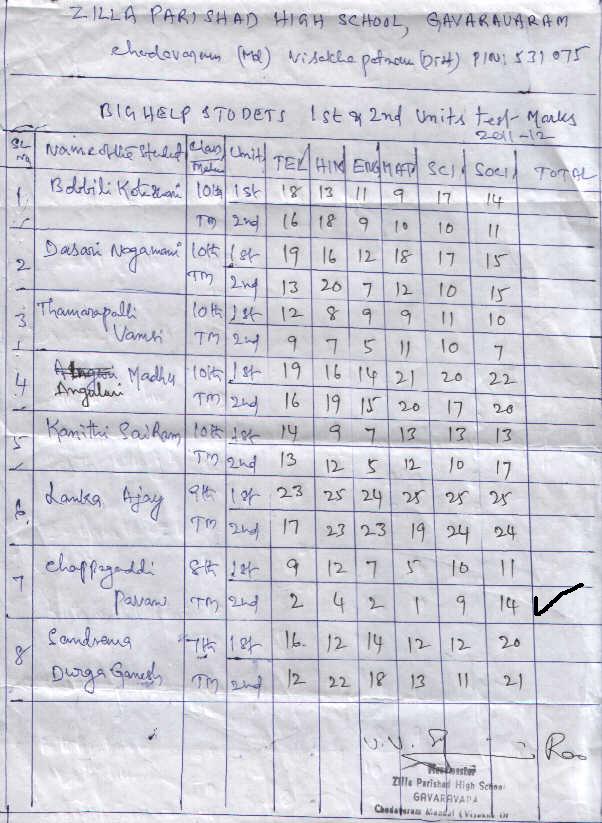 ZILLA PARISHAD HIGH SCHOOL, GAVARAVARAM
chodavaram (Md) Visakhapatnam (Dist) PIN: 531075
BIGHELP STODETS 1st & 2nd Units test Marks
2011-12
SL No Name of the Student Class Medium Unit TEL HIN ENG MAT SCI SOCI TOTAL
1 Bobbili Koteswari 10th 1st 18 13 11 9 17 14
TM 2nd 16 18 9 10 10 11
2 Dasari Nagamani 10th 1st 19 16 12 18 17 15
TM 2nd 13 20 7 12 10 15
3 Thamarapalli 10th 1st 12 8 9 9 11 10
Vamsi TM 2nd 9 7 5 11 10 7
4 Madhu 10th 1st 19 16 14 21 20 22
Angaluri TM 2nd 16 19 15 20 17 20
5 Kamithi SaiRam 10th 1st 14 9 7 13 13 13
TM 2nd 13 12 5 12 10 17
6. Lanka Ajay 9th 1st 23 25 24 25 25 25
TM 2nd 17 23 23 19 24 24
7 Chappagaddi 8th 1st 9 12 7 5 10 11
Pavani TM 2nd 2 4 2 1 9 14
8 7th 1st 16. 12 14 12 12 20
Durga Ganesh TM 2nd 12 22 18 13 11 21
V. V. Rao
Headmaster
Zilla Parishad High School
GAVARAVARAM
Chodavaram Mandal